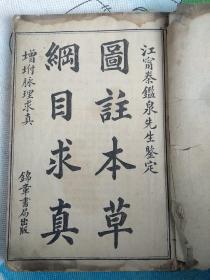 江甯秦鑑泉先生鑒定
圖註本草
綱目求真
增坿脉理求真
錦章書局出版